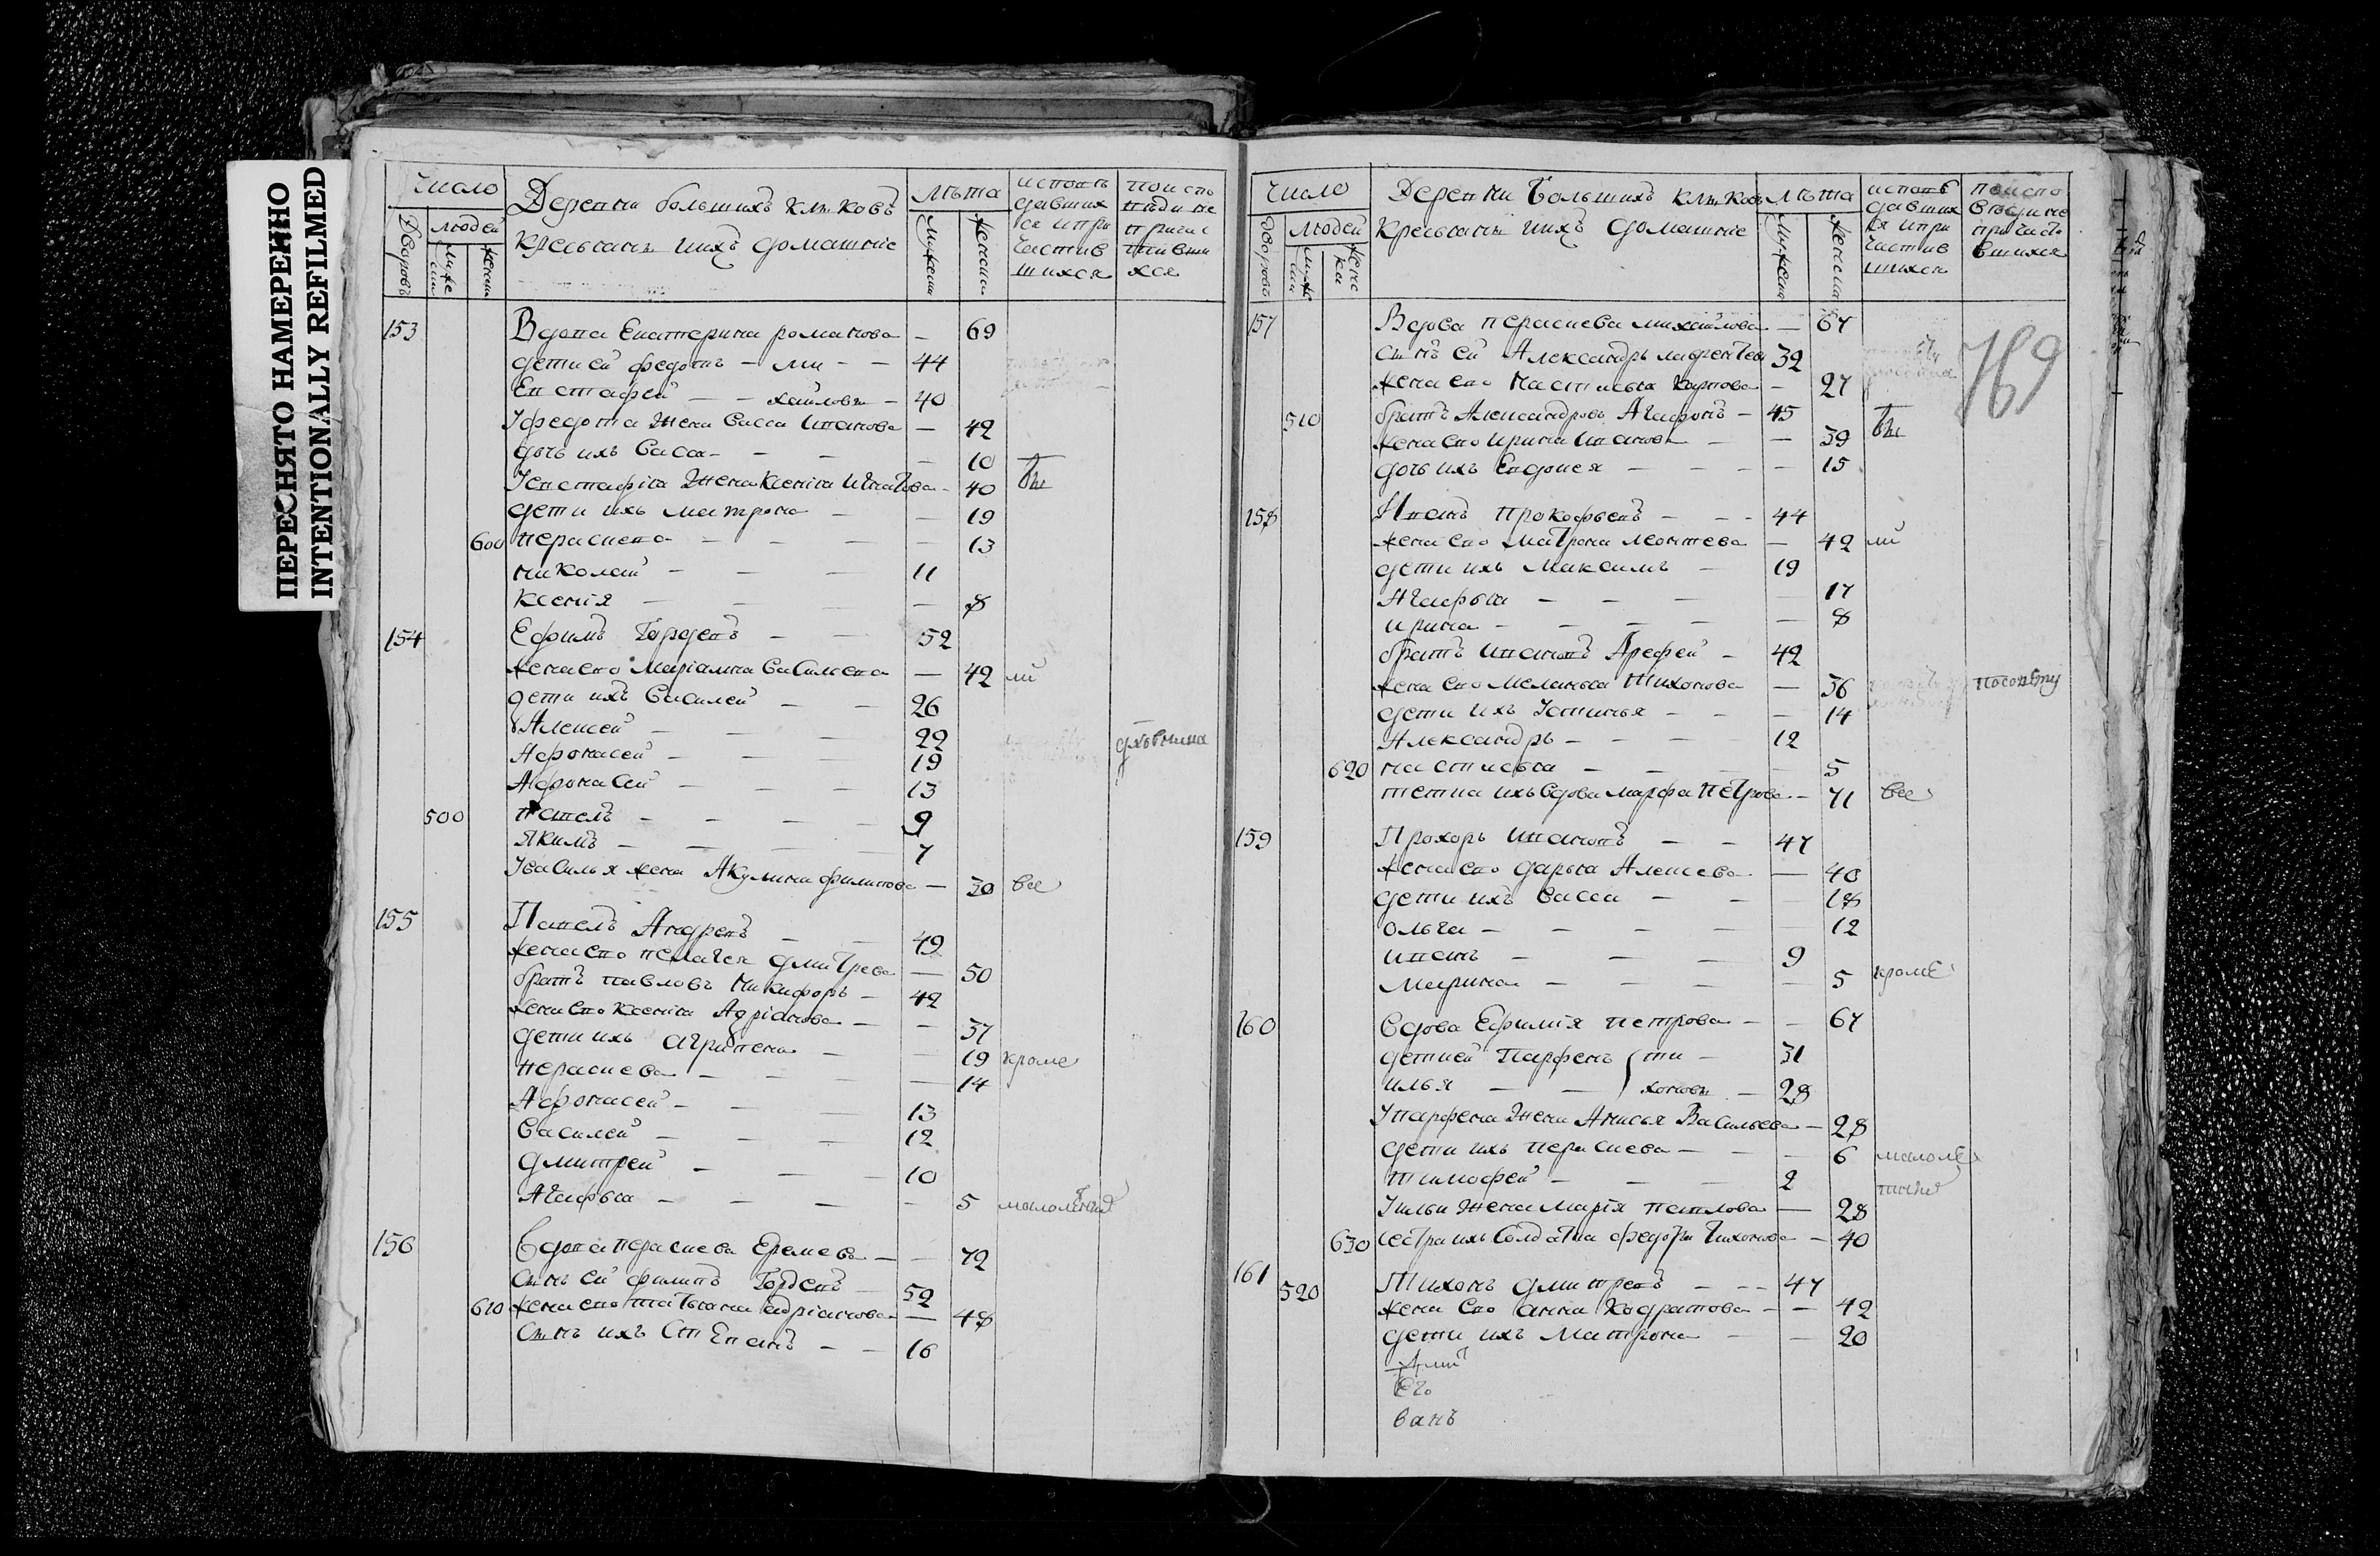 ПЕРЕСНЯТО НАМЕРЕННО
INTENTIONALLY REFILMED
Число
Дворовъ
людей
муже
ска
женска
Деревни большихъ клы ковъ
крестьяня ихъ домашніе
лѣта
мужска
женска
исповѣ
давших
ся и при
частив
шихся
по испо
види не
причас
тивши
хся
153 Вдова Екатерина романова — 69
дети ей федотъ — ми — — 44
Евстафей — — хайловы — 40
У федота жена Васса иванова — 42
дочь ихъ Васса — — — — 10
У евстафіа жена Ксеніа игнатова — 40 вы
дети ихъ матрона — — 19
600 параскева — — — — 13
николай — — — 11
Ксенія — — — — 8
154 Ефимъ Гордеевъ — — 52
жена ево Маріамна василева — 42 ли
дети ихъ Василей — — 26
Алексей — — — 22
Афонасей — — — 19
Афонасей — — — 13
500 павелъ — — — — 9
Якимъ — — — — 7
У василья жена Акулина филипова — 30 все
155 Павелъ Андреевъ — — 49
жена ево пелагея дмитрева — 50
братъ павловъ Никифоръ — 42
жена ево ксеніа Адріанова — — 37
дети ихъ агрипена — — 19 кроме
параскева — — — — 14
Афонасей — — 13
Василей — — — 12
дмитрей — — — 10
Агафьа — — — — 5 малолетныя
156 вдова параскева Еремева — — 72
сынъ ей филипъ Гордеевъ — 52
610 жена ево татьяна адріанова — 48
сынъ ихъ Степанъ — — 16
Число
дворовъ
людей
муже
ска
женс
ка
Деревни большихъ клы ковъ
крестьяня ихъ домашніе
лѣта
мужска
женска
исповѣ
давших
ся и при
частив
шихся
по испо
види не
причасти
вшихся
769
157 Вдова параскева михайлова — 67
сынъ ей Александръ лаврентьев 32
жена ево настасьа карпова — 27
510 братъ Александровъ Агафонъ — 45 вы
жена ево ирина иванова — — 39
дочь ихъ Евдокея — — — — 15
158 Иванъ Прокофьевъ — — — 44
жена ево матрона леонтева — 42 ли
дети ихъ Максимъ — 19
Агафьа — — — — 17
ирина — — — — — 8
братъ ивановъ Арефей — 42
жена ево меланьа тихонова — 36
дети ихъ Устинья — — — 14
Александръ — — — — 12
620 настасьа — — — — 5
тетка ихъ вдова марфа петрова — 71 все
159 Прохоръ ивановъ — — 47
жена ево дарьа Алексева — 40
дети ихъ Васса — — — 18
ольга — — — — — 12
иванъ — — — 9
Марина — — — — — 5 кроме
160 вдова Ефимія петрова — — 67
дети ей Парфенъ ти — 31
илья — — хоновы — 28
У парфена жена Анисья Васильева — 28
дети ихъ параскева — — — 6 малоле
тимофей — — — 2 тные
У ильи жена марія павлова — 28
630 сестра ихъ солдатка федотья Тихонова — 40
161 520 Тихонъ дмитревъ — — — 47
жена ево анна кодратова — — 42
дети ихъ Матрона — — 20
Его
ванъ